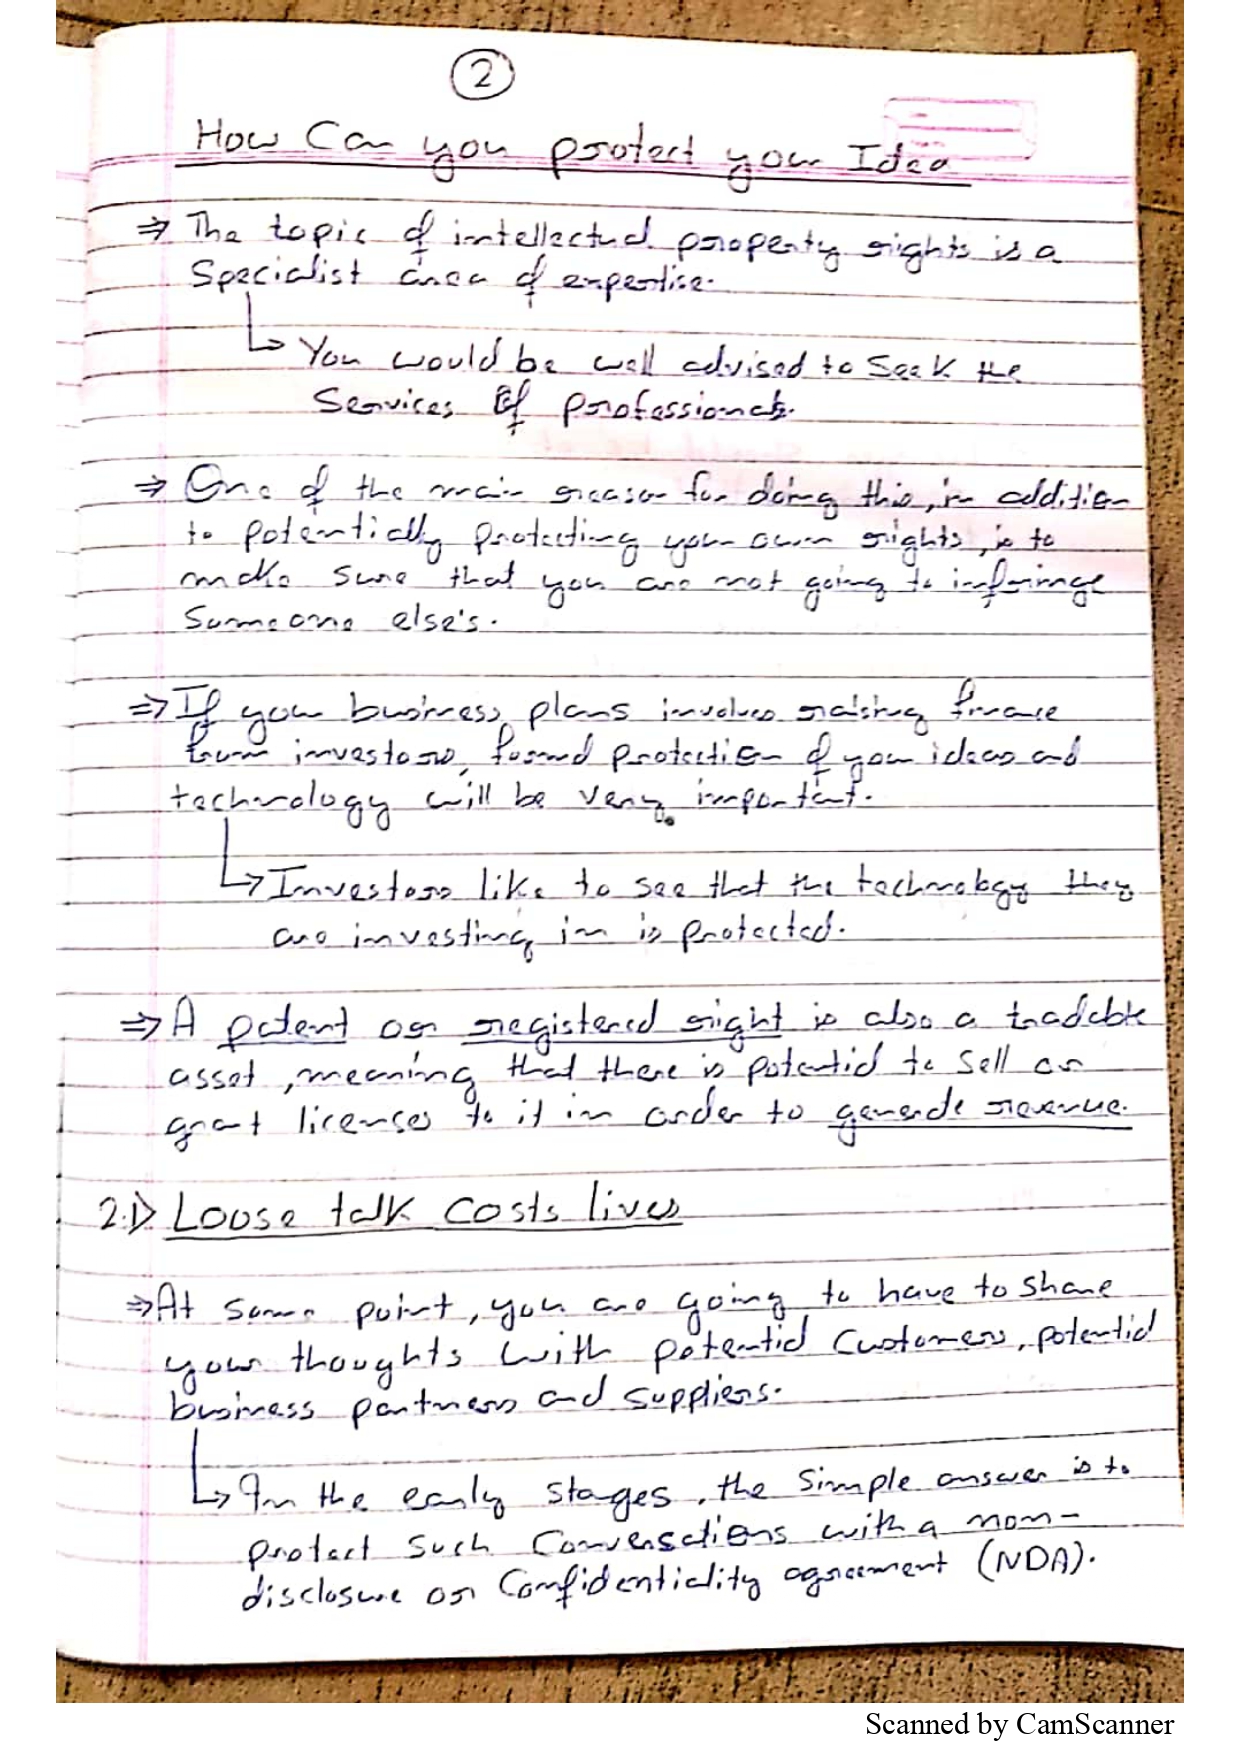 2
How Can you protect your Idea
⇒ The topic of intellectual property rights is a
Specialist area of expertise.
↳ You would be well advised to seek the
Services of professionals.
⇒ One of the main reason for doing this, in addition
to potentially protecting your own rights, is to
make sure that you are not going to infringe
Someone else's.
⇒ If your business plans involves raising finance
from investors, formal protection of your ideas and
technology will be very important.
↳ Investors like to see that the technology they
are investing in is protected.
⇒ A patent or registered right is also a tradable
asset, meaning that there is potential to sell or
grant licenses to it in order to generate revenue.
2.1) Loose talk costs lives
⇒ At some point, you are going to have to share
your thoughts with potential customers, potential
business partners and suppliers.
↳ In the early stages, the simple answer is to
protect such Conversations with a non-
disclosure or Confidentiality agreement (NDA).
Scanned by CamScanner